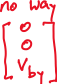 no way
0
0
V by